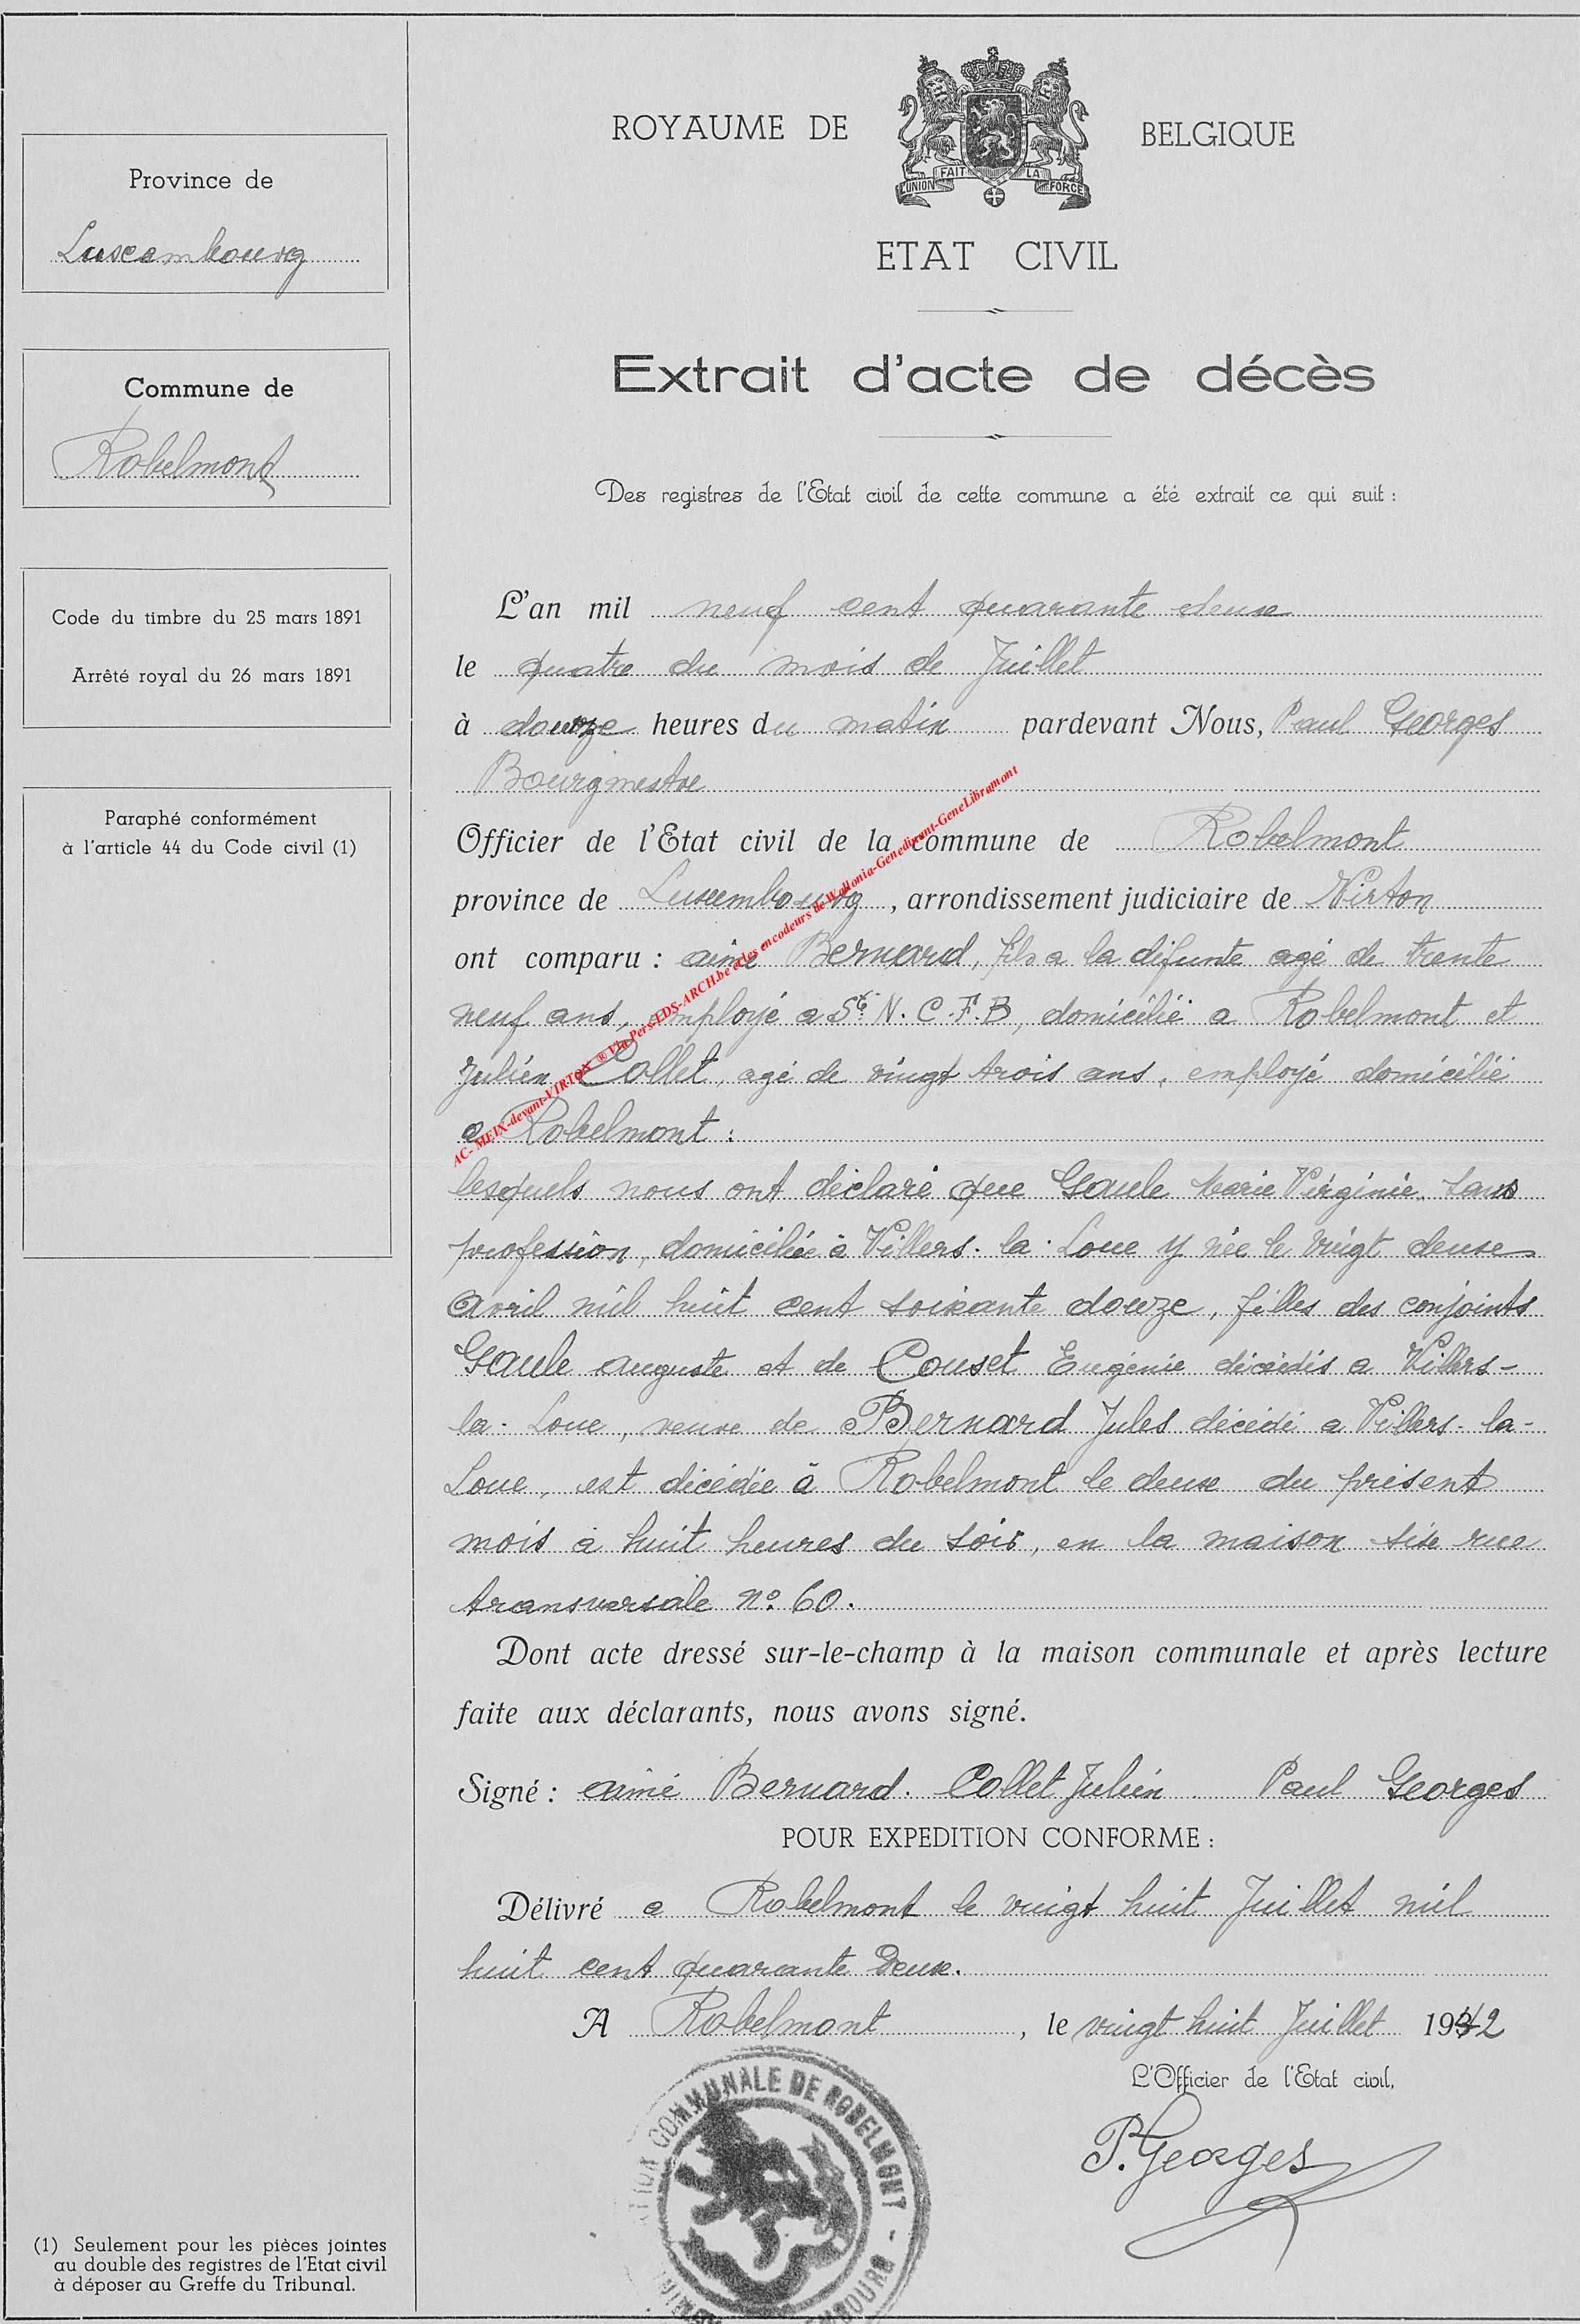 Province de
Luxembourg
Commune de
Robelmont
Code du timbre du 25 mars 1891
Arrêté royal du 26 mars 1891
Paraphé conformément
à l'article 44 du Code civil (1)
(1) Seulement pour les pièces jointes
au double des registres de l'Etat civil
à déposer au Greffe du Tribunal.
ROYAUME DE BELGIQUE
L'UNION FAIT LA FORCE
ETAT CIVIL
Extrait d'acte de décès
Des registres de l'Etat civil de cette commune a été extrait ce qui suit :
L'an mil neuf cent quarante deux
le quatre du mois de Juillet
à douze heures du matin pardevant Nous, Paul Georges
Bourgmestre
Officier de l'Etat civil de la commune de Robelmont
province de Luxembourg, arrondissement judiciaire de Virton
ont comparu : aimé Bernard, fils a la défunte agé de trente
neuf ans, employé a Sté N. C. F. B, domicilié a Robelmont et
Julien Collet, agé de vingt trois ans, employé domicilié
a Robelmont :
lesquels nous ont déclaré que Gaule Marie Virginie, sans
profession, domiciliée à Villers-la-Loue y née le vingt deux
avril mil huit cent soixante douze, filles des conjoints
Gaule auguste et de Couset Eugénie décédés a Villers-
la-Loue, veuve de Bernard Jules décédé a Villers-la-
Loue, est décédée à Robelmont le deux du présent
mois à huit heures du soir, en la maison sise rue
transversale No. 60.
Dont acte dressé sur-le-champ à la maison communale et après lecture
faite aux déclarants, nous avons signé.
Signé : aimé Bernard. Collet Julien Paul Georges
POUR EXPEDITION CONFORME :
Délivré a Robelmont le vingt huit Juillet mil
huit cent quarante Deux.
A Robelmont, le vingt huit Juillet 1942
L'Officier de l'Etat civil,
P. Georges
COMMUNALE DE ROBELMONT
AC- MEIX-devant-VIRTON ® Via Pers-LDS-ARCH.be et les encodeurs de Wallonia-Genedinant-GeneLibramont